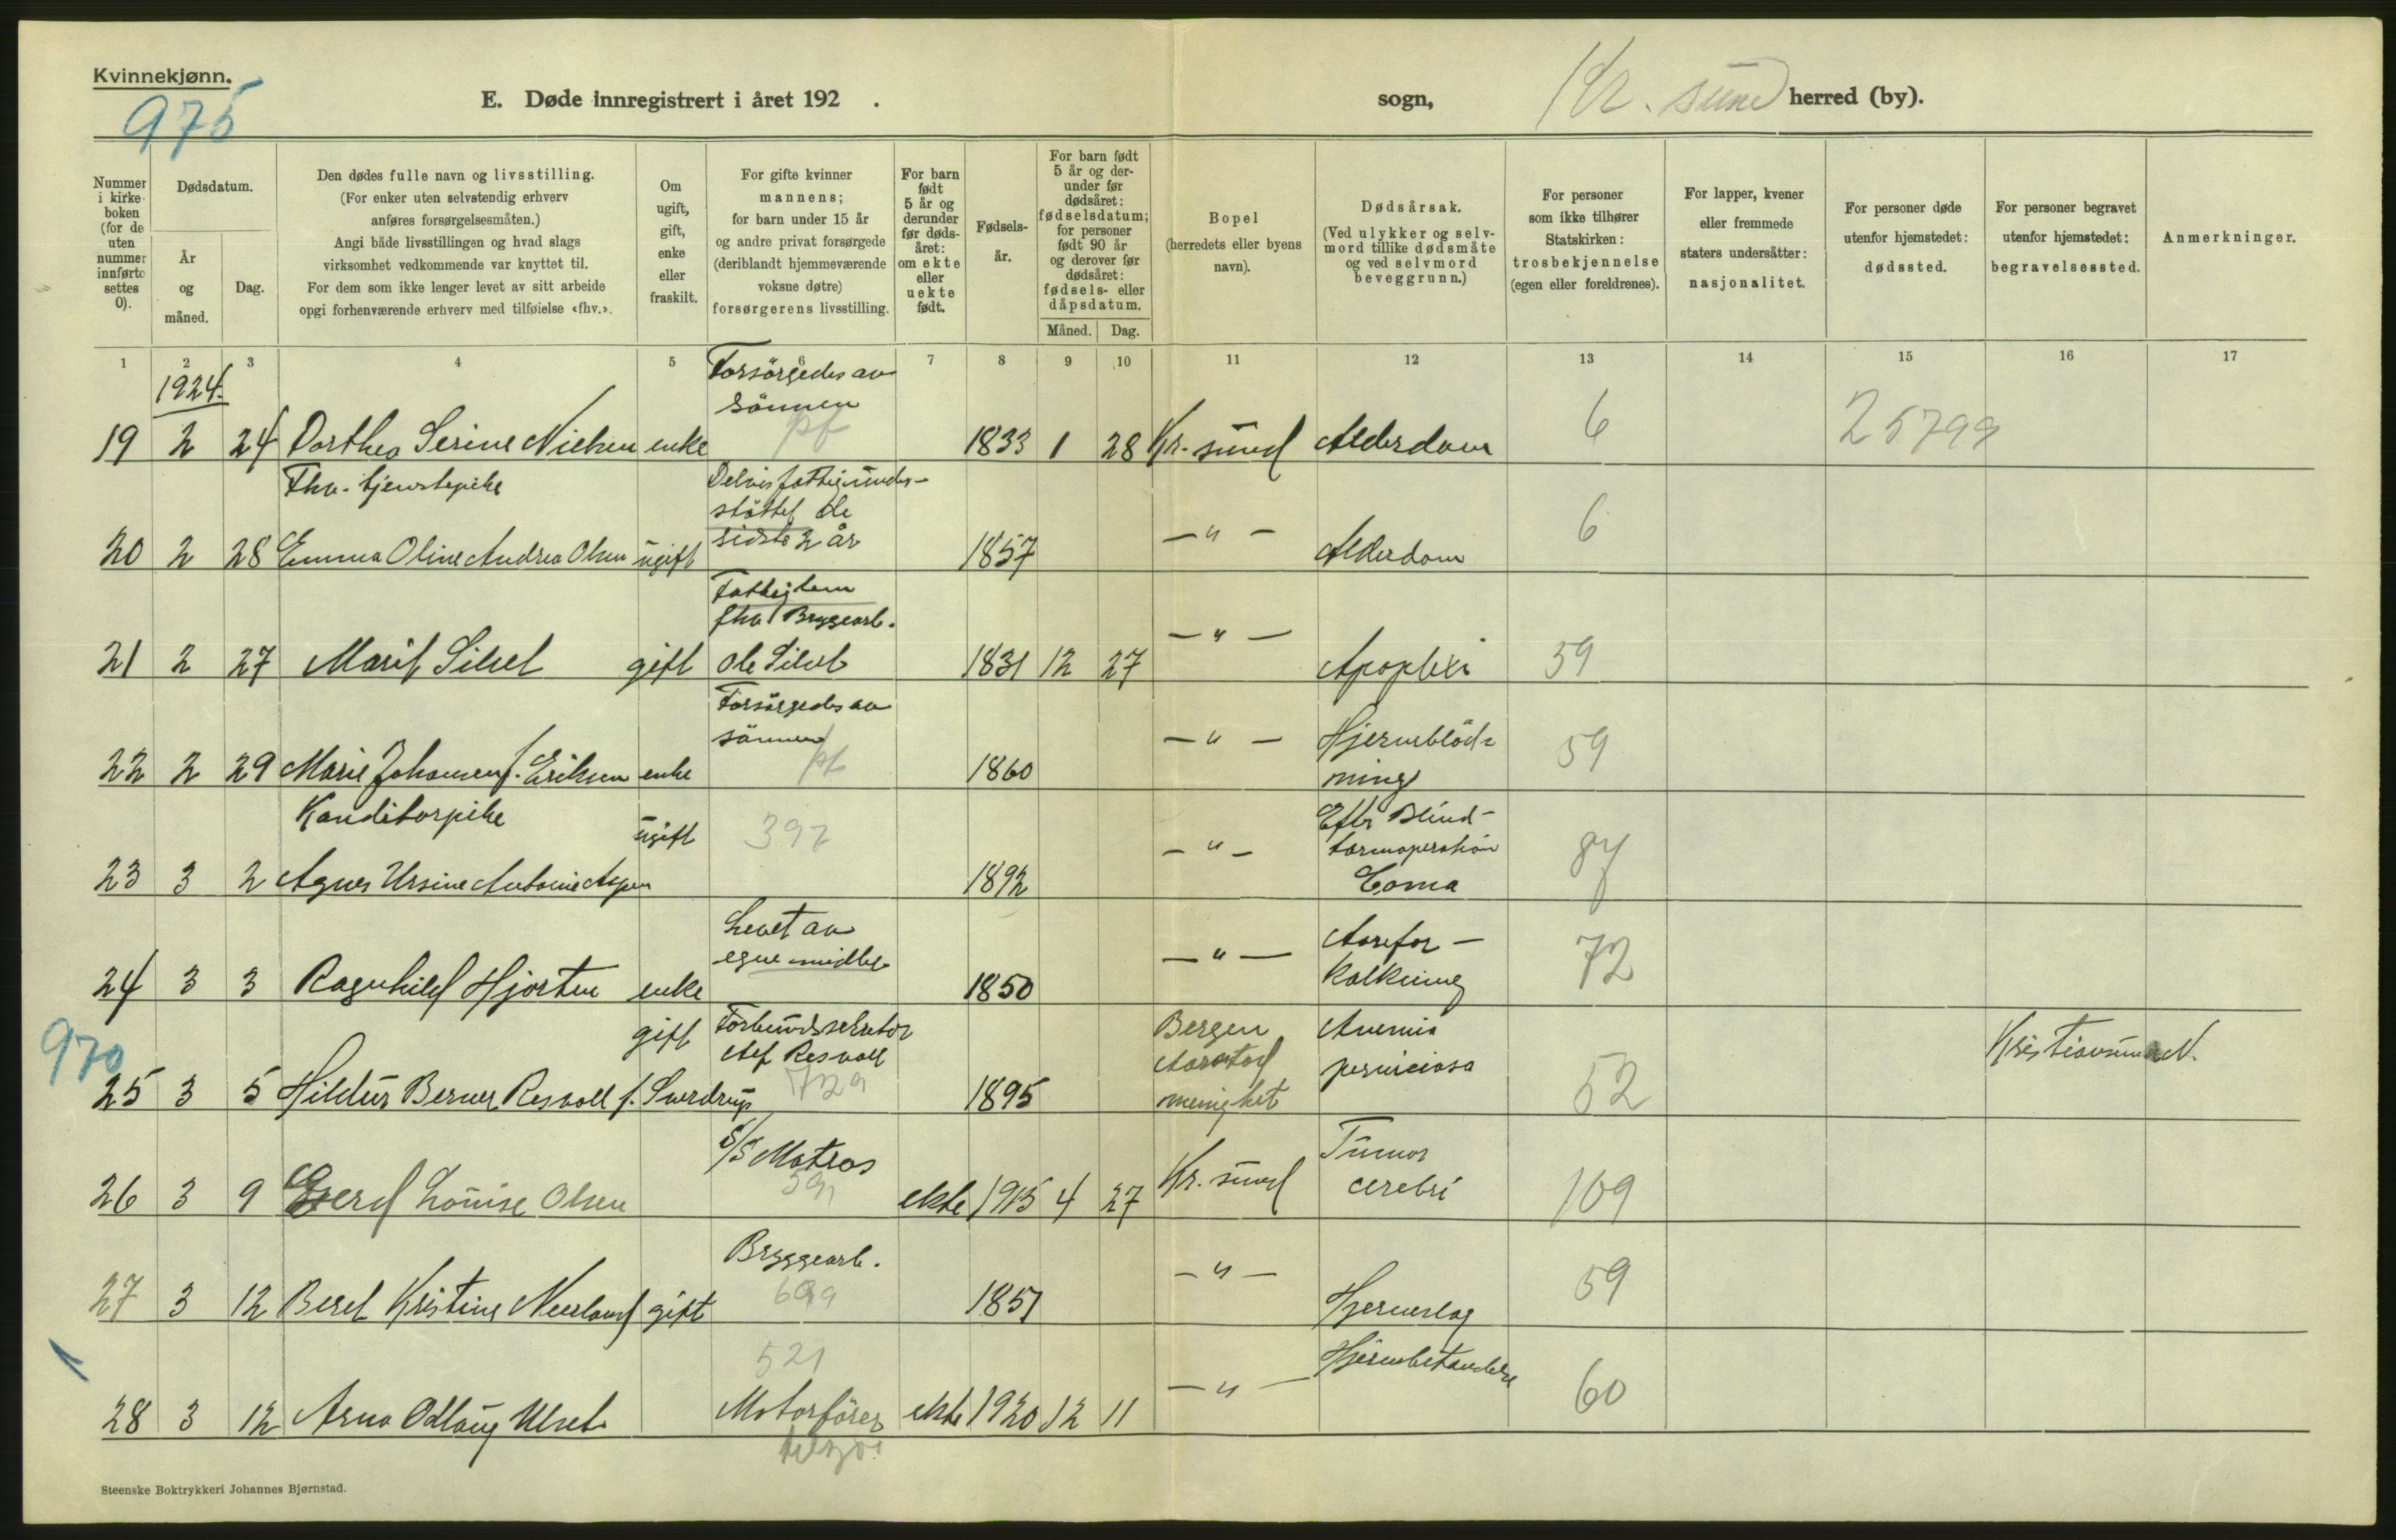 Kvinnekjønn.
975
E. Døde innregistrert i året 192 .
sogn,
Kr. sund herred (by).
Nummer i kirkeboken (for de uten nummer innførte settes 0).
Dødsdatum.
År og måned.
Dag.
Den dødes fulle navn og livsstilling.
(For enker uten selvstendig erhverv
anføres forsørgelsesmåten.)
Angi både livsstillingen og hvad slags
virksomhet vedkommende var knyttet til.
For dem som ikke lenger levet av sitt arbeide
opgi forhenværende erhverv med tilføielse «fhv.».
Om ugift, gift, enke eller fraskilt.
For gifte kvinner
mannens;
for barn under 15 år
og andre privat forsørgede
(deriblandt hjemmeværende
voksne døtre)
forsørgerens livsstilling.
For barn født 5 år og derunder før dødsåret: om ekte eller uekte født.
Fødselsår.
For barn født 5 år og derunder før dødsåret: fødselsdatum; for personer født 90 år og derover før dødsåret: fødsels- eller dåpsdatum.
Måned. Dag.
Bopel
(herredets eller byens
navn).
Dødsårsak.
(Ved ulykker og selvmord tillike dødsmåte
og ved selvmord
beveggrunn.)
For personer
som ikke tilhører
Statskirken:
trosbekjennelse
(egen eller foreldrenes).
For lapper, kvener
eller fremmede
staters undersåtter:
nasjonalitet.
For personer døde
utenfor hjemstedet:
dødssted.
For personer begravet
utenfor hjemstedet:
begravelsessted.
Anmerkninger.
1 2 3 4 5 6 7 8 9 10 11 12 13 14 15 16 17
1924.
Forsörgedes av
sönnen
19 2 24 Dorthea Serine Nielsen enke pf 1833 1 28 Kr. sund Alderdom 6 25799
Fhv. tjenstepike
Delvis fattigunder-
støttet de
sidste 2 år
20 2 28 Emma Oline Andrea Olsen ugift 1857 - " - Alderdom 6
Fattiglem
fhv Bryggearb.
21 2 27 Marit Silset gift Ole Silset 1831 12 27 - " - Apoplexi 59
Forsörgedes av
sönnen
22 2 29 Marie Johansen f. Eriksen enke pf 1860 - " - Hjerneblöd-
ning 59
Kanditorpike
23 3 2 Agnes Ursine Antonie Aspen ugift 397 1892 - " - Efter Blind-
tarmoperation
Coma
87
Levet av
egne midler
24 3 3 Ragnhild Hjorten enke 1850 - " - Aarefor-
kalkning 72
970
gift Forbundssekretær
Alf Resvoll
729
25 3 5 Hildur Berner Resvoll f. Sverdrup 1895 Bergen
Aarstad
menighet
Anemia
perniciosa 52 Kristiansund N.
S/S Matros
591
26 3 9 Gerd Louise Olsen ekte 1915 4 27 Kr. sund Tumor
cerebri 109
Bryggearb.
699
27 3 12 Beret Kristine Neerland gift 1851 - " - Hjerneslag 59
521
28 3 12 Arna Odlaug Ulset Motorförer ekte 1920 12 11 - " - Hjernebetændelse 60
Steenske Boktrykkeri Johannes Bjørnstad.